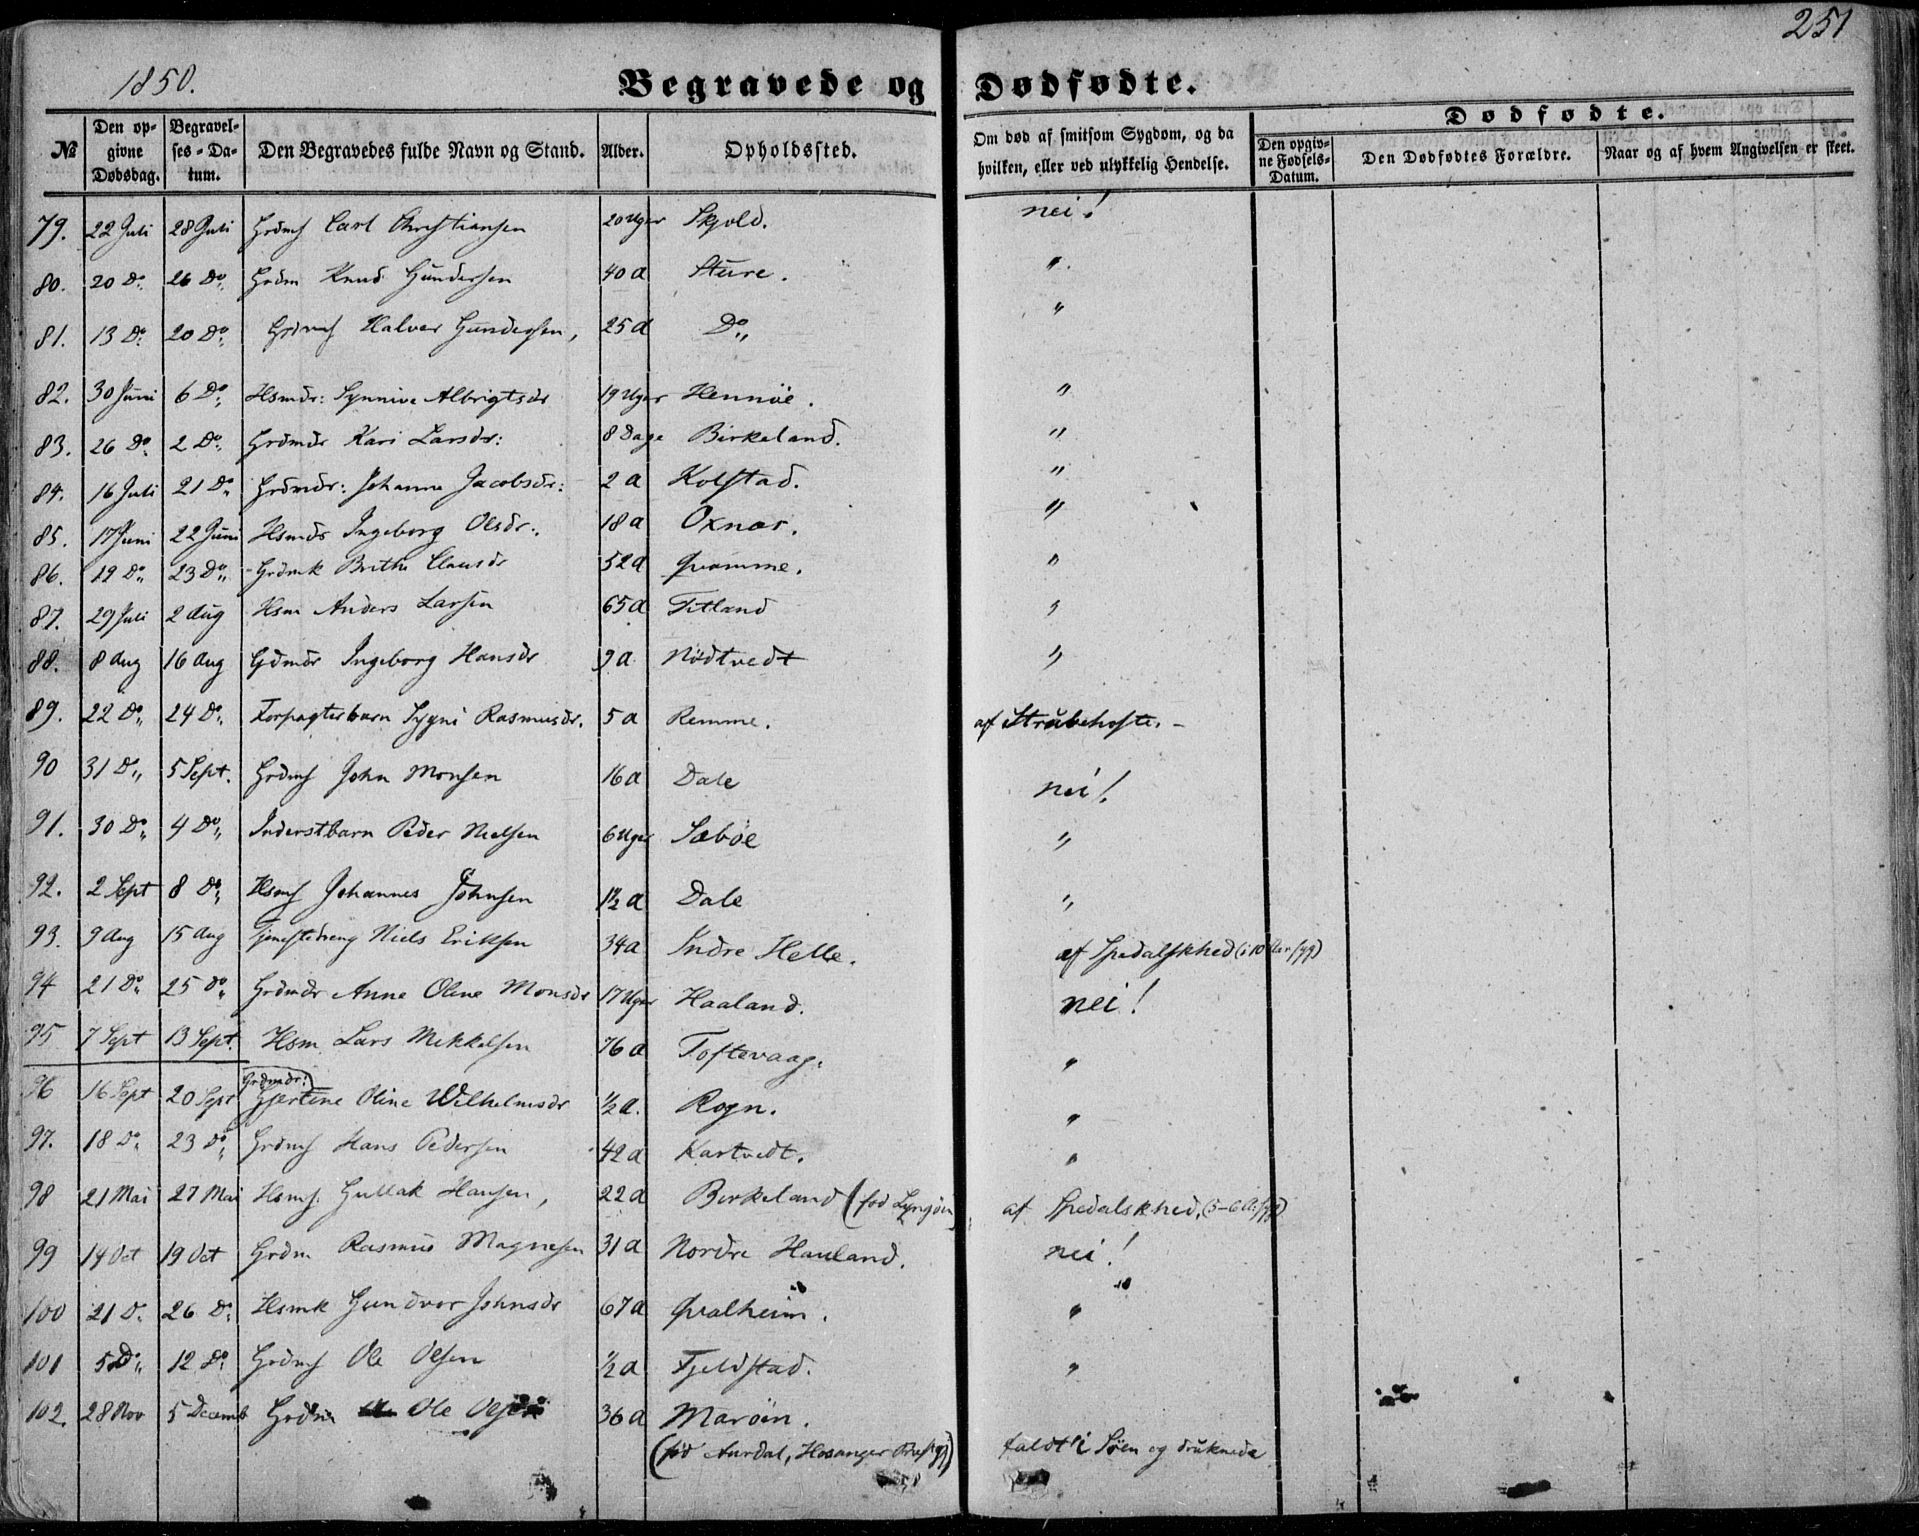 251
1850. Begravede og Dødfødte.
№ Den opgivne Dødsdag. Begravelses-Datum. Den Begravedes fulde Navn og Stand. Alder. Opholdssted. Om død af smitsom Sygdom, og da hvilken, eller ved ulykkelig Hendelse. Dødfødte. Den opgivne Fødsels-Datum. Den Dødfødtes Forældre. Naar og af hvem Angivelsen er skeet.
79. 22 Juli 28 Juli Grdms Carl Christiansen 20 Uger Skjold. nei!
80. 20 Do. 26 Do. Grdm Knud Gundersen 40 a Sture. "
81. 13 Do. 20 Do. Grdms Halvor Gundersen, 25 a Do. "
82. 30 Juni 6 Do. Hsmdr: Synnive Albrigtsdr 19 Uger Hennøe. "
83. 26 Do. 2 Do. Grdmdr Kari Larsdr: 8 Dage Birkeland. "
84. 16 Juli 21 Do. Grdmdr: Johanna Jacobsdr: 2 a Kolstad. "
85. 17 Juni 22 Juni Hsmdr Ingeborg Olsdr: 18 a Oxnæs. "
86. 19 Do. 23 Do. Grdmk Brithe Clausdr 52 a Qvamme. "
87. 29 Juli 2 Aug Hsm Anders Larsen 65 a Titland "
88. 8 Aug 16 Aug Gdmdr Ingeborg Hansdr 9 a Nödtvedt "
89. 22 Do. 24 Do. Forpagterbarn Sygni Rasmusdr. 5 a Remme. af Strubehoste. -
90 31 Do. 5 Sept. Grdms John Monsen 16 a Dale nei!
91. 30 Do. 4 Do. Inderstbarn Peder Nielsen 6 Uger Sæbøe "
92. 2 Sept 8 Do. Hsms Johannes Johnsen 1½ a Dale "
93. 9 Aug 15 Aug Tjenestedreng Niels Eriksen 34 a Indre Helle. af Spedalskhed (i 10 Aar syg)
94 21 Do. 25 Do. Grdmdr Anne Oline Monsdr 17 Uger Haaland. nei!
95 7 Sept 13 Sept. Hsm Lars Mikkelsen 76 a Toftevaag. "
96 16 Sept 20 Sept Grdmdr: Gjertine Oline Wilhelmsdr ½ a. Rogn. "
97. 18 Do. 23 Do. Grdms Hans Pedersen 42 a Kartvedt. "
98 21 Mai 27 Mai Hsms. Gullak Hansen, 22 a Birkeland (fød Lyngøen) af Spedalskhed, (5-6 A. syg)
99 14 Oct 19 Oct Grdm Rasmus Magnesen 31 a Nordre Hauland. nei!
100 21 D. 26 D. Hsmk Gundvor Johnsdr 67 a Qvalheim. "
101 5 Do. 12 Do. Grdms Ole Olsen ½ a Fjeldstad. "
102. 28 Nov 5 Decemb Grdm Ole Olsen 36 a Marøen.
(fød Aurdal, Hosanger Præstgj) faldt i Søen og druknede